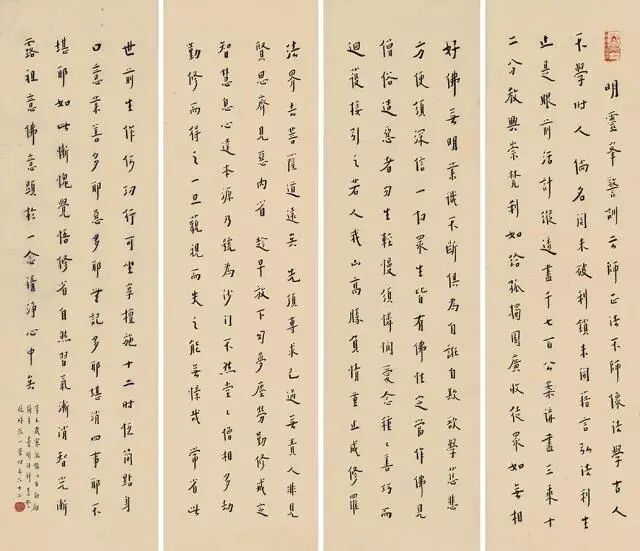 明靈峯警訓云師正法不師像法學古人
不學時人倘名關未破利鎖未開藉言弘法利生
止是眼前活計縱透盡千七百公案講盡三乘十
二分教興崇梵刹如給孤獨園廣收徒眾如無相
好佛無明業識不斷俱為自誑自欺欲學慈悲
方便須深信一切眾生皆有佛性定當作佛見
僧俗造惡者勿生輕慢須憐憫愛念種〻善巧而
迴護接引之若人我山高勝負情重止成修羅
法界去菩薩道遠矣先須專求己過毋責人非見
賢思齊見惡內省趁早放下夢塵勞勤修戒定
智慧息心達本源乃號為沙門不然堂〻僧相多劫
勤修而得之一旦藐視而失之能無懍哉常省此
世前生作何功行可坐享檀施十二時簡點身
口意業善多耶惡多耶無記多耶堪消四事耶不
堪耶如此慚愧覺悟修省自然習氣漸消智光漸
露祖意佛意顯於一念清淨心中矣